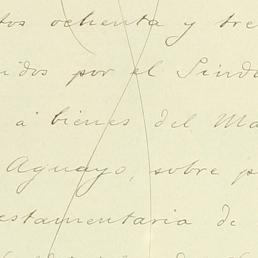 tos ochenta y tre
idos por el Sindi
á bienes del Ma
Aguayo, sobre p
estamentaria de